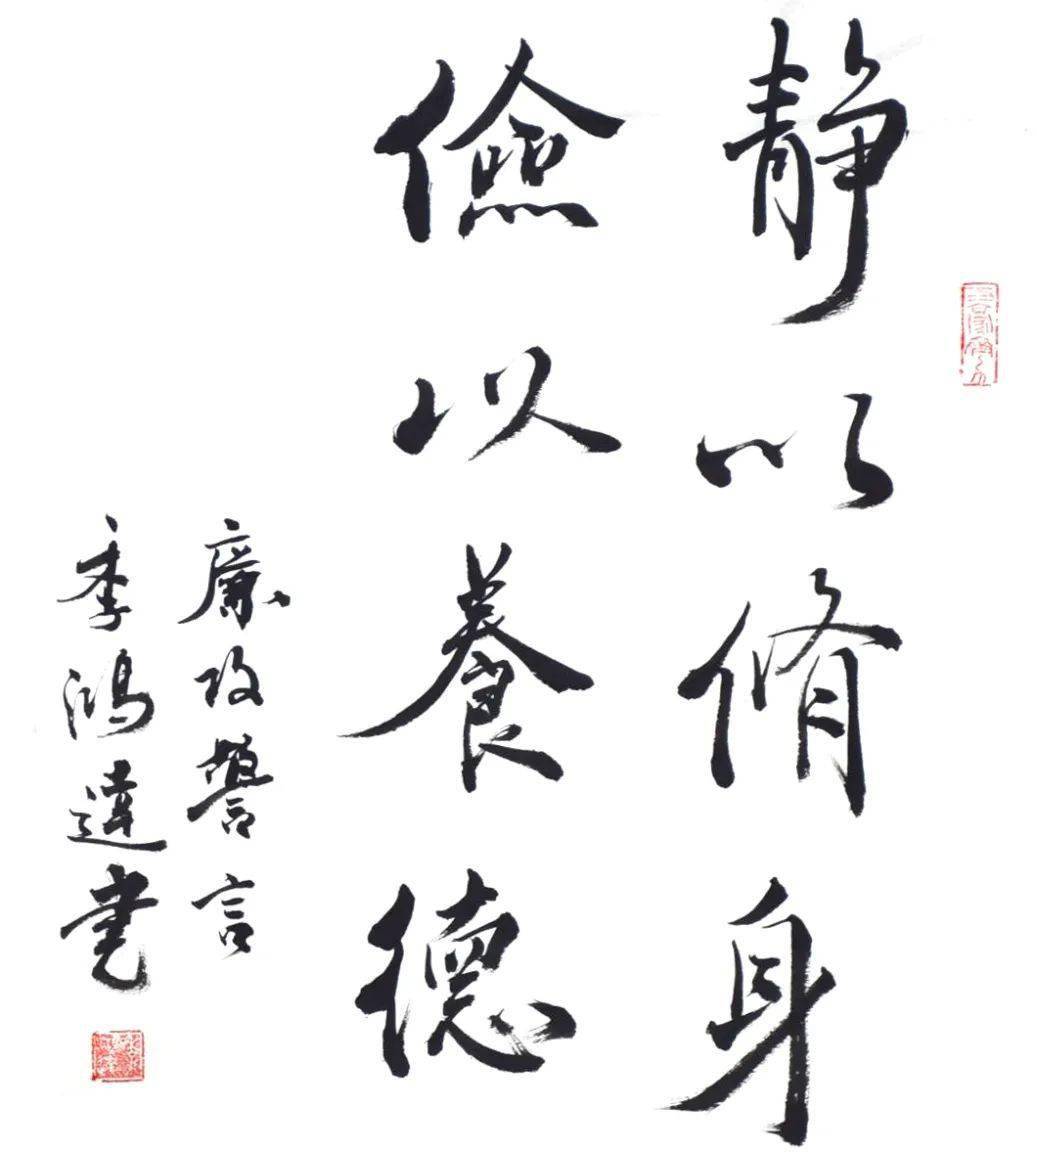 靜以脩身
儉以養德
廉政警言
季鴻達書